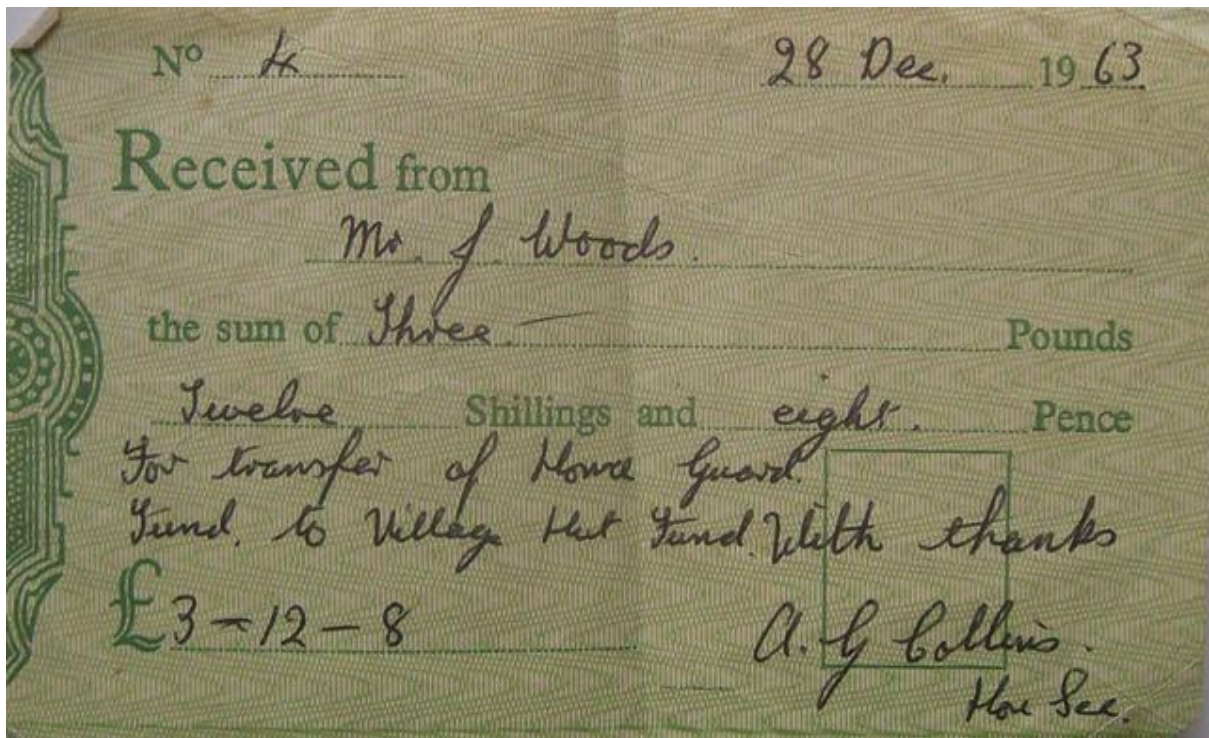 Nº 4 28 Dec. 1963
Received from
Mr. J Woods.
the sum of Three Pounds
Twelve Shillings and eight. Pence
For transfer of Home Guard.
Fund. to Village Hut Fund. With thanks
£3-12-8 A. G Collins.
Hon Sec.